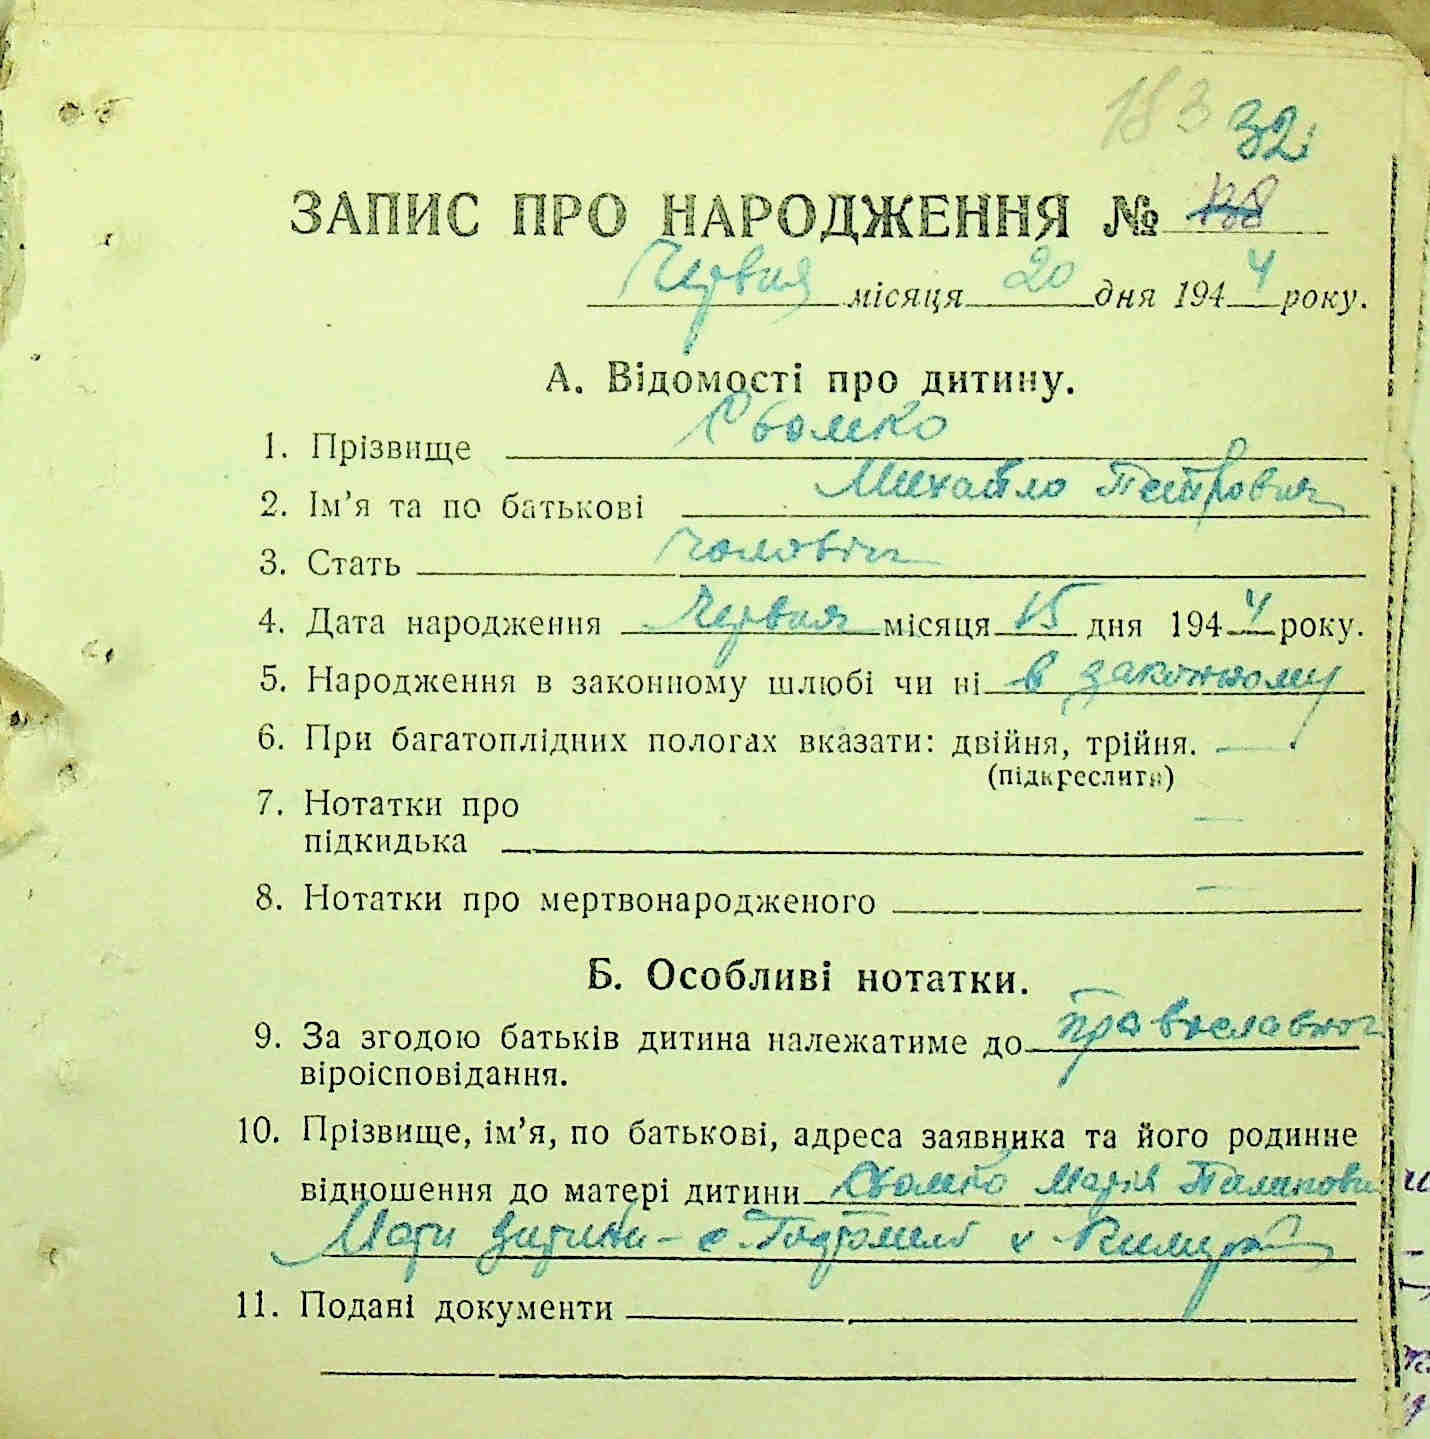 183 32
ЗАПИС ПРО НАРОДЖЕННЯ № 138
Червня місяця 20 дня 1944 року.
А. Відомості про дитину.
1. Прізвище Сьомко
2. Ім’я та по батькові Михайло Петрович
3. Стать чоловіч
4. Дата народження Червня місяця 15 дня 1944 року.
5. Народження в законному шлюбі чи ні в законному
6. При багатоплідних пологах вказати: двійня, трійня. —
(підкреслити)
7. Нотатки про
підкидька —
8. Нотатки про мертвонародженого —
Б. Особливі нотатки.
9. За згодою батьків дитина належатиме до православног
віроісповідання.
10. Прізвище, ім’я, по батькові, адреса заявника та його родинне
відношення до матері дитини Сьомко Марія
Мати дитини - с.
11. Подані документи